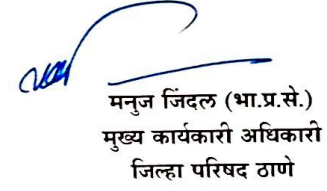 मनुज जिंदल (भा.प्र.से.)
मुख्य कार्यकारी अधिकारी
जिल्हा परिषद ठाणे